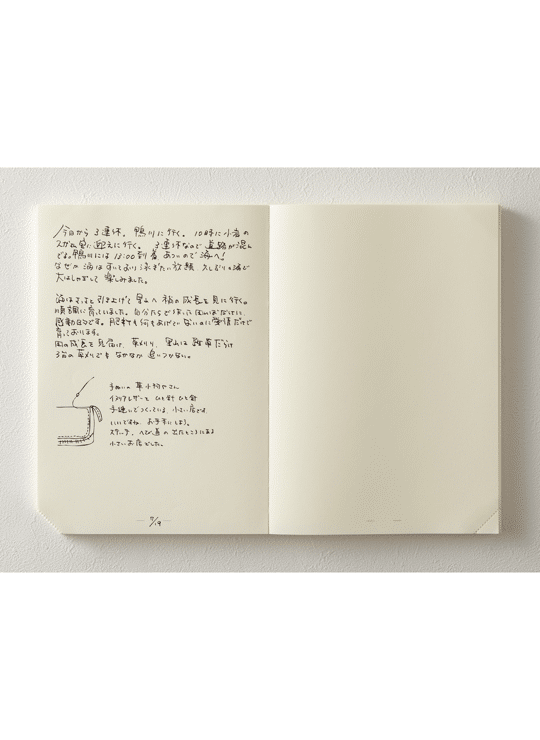 今日から3連休。鴨川に行く。10時に小倉の
スガさん宅に迎えに行く。3連休なので道路が混ん
でる。鴨川には13:00到着 あついので海へ!
なぜか海はすいており泳ぎたい放題 久しぶりの海で
大はしゃぎして楽しみました。
海はさっさと引き上げて里山へ 稲の成長を見に行く。
順調に育っていました。自分たちで植えた田んぼだけに、
感動的です。肥料も何もあげていないのに愛情だけで
育っております。
田の成長を見届け、草刈り、里山は雑草だらけ
3台の草刈りでもなかなか追いつかない。
手ぬいの革小物やさん
イタリアレザーを ひと針 ひと針
手縫いでつくっている 小さい店です。
いいですね。お手本にしよう。
ステッチ、へび道の出たところにある
小さいお店でした。
7/19